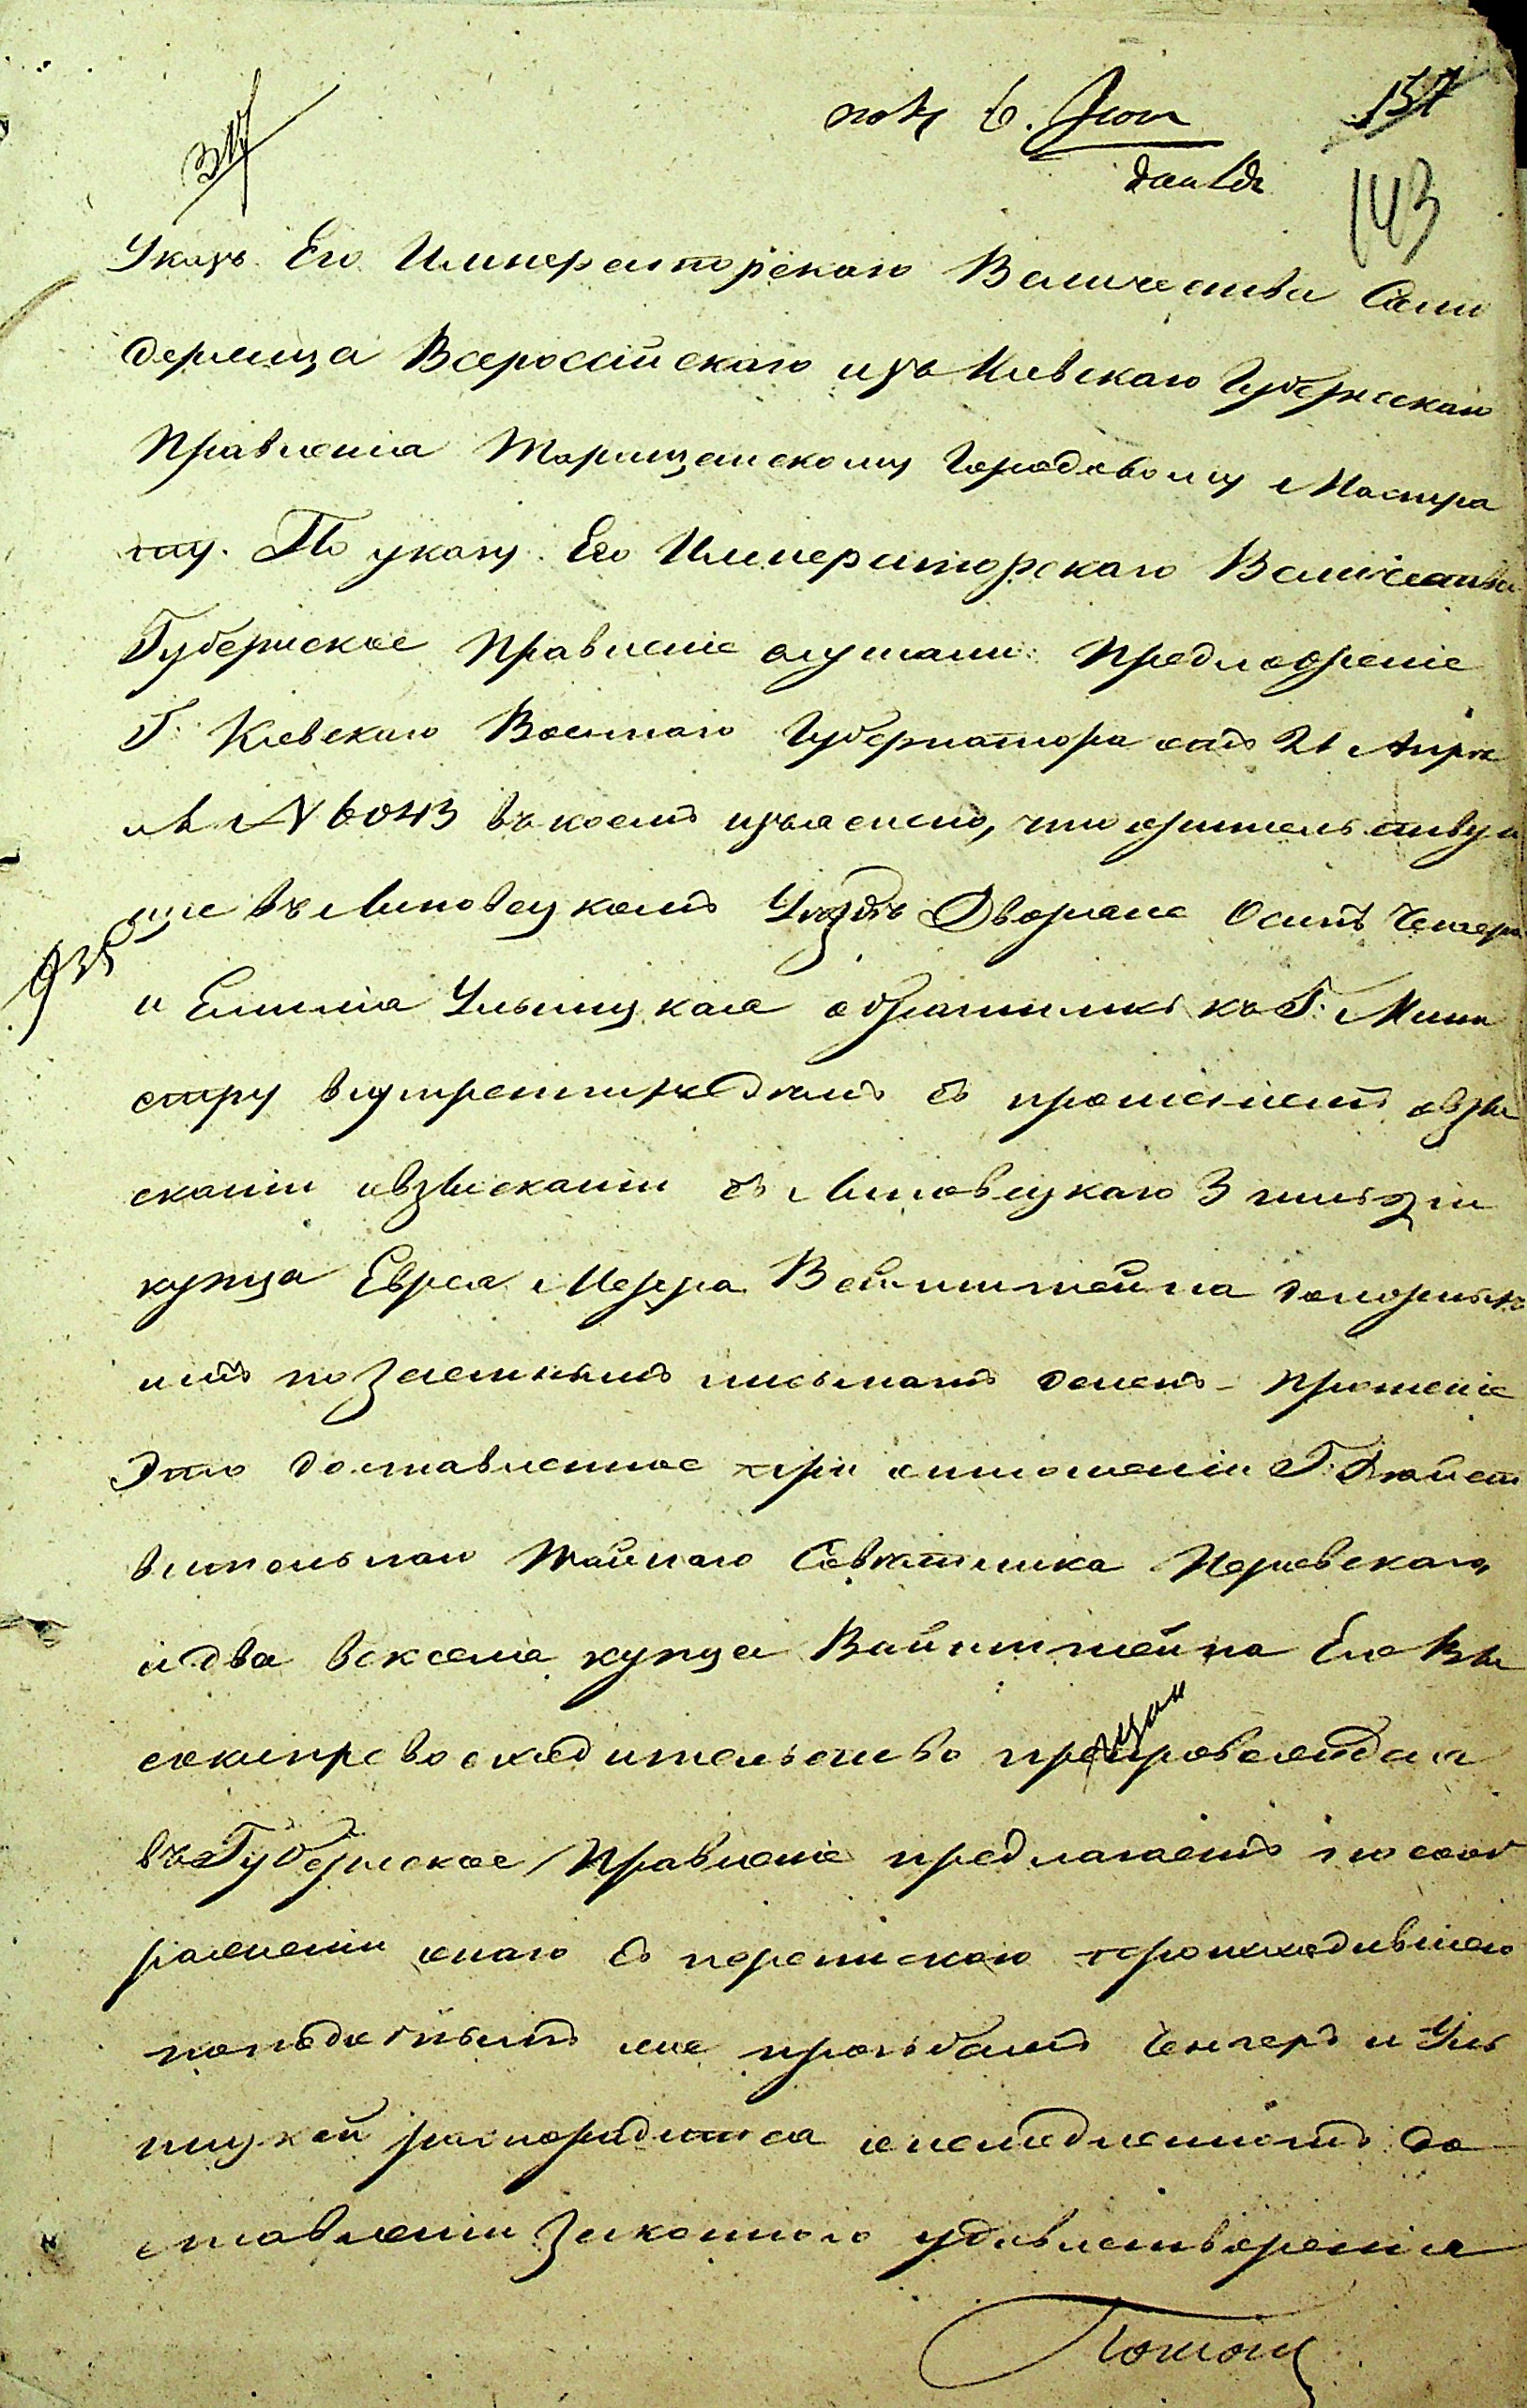 157
143
Указъ Его Императорскаго Величества Само
держица Всероссійскаго изъ Кіевскаго Губернскаго
Правленія Таращанскому Городовому Мастра
ту. По указу Его Императорскаго Величества
Губернское Правленіе слушали: Предложеніе
Г. Кіевскаго Военнаго Губернатора отъ 21 Апре
ля N 6043 въ коемъ изъяснено, что жительствую
щіе въ Липовецкомъ Уездѣ Дворяне Осипъ Ченгеръ
и Емилія Ульницкая обратились къ Г. Мини
стру внутреннихъ Делъ съ прошеніемъ о взы
сканіи о взысканіи съ Липовецкаго 3 гильдіи
купца Еврея Мезера Вейнштейна
имъ по заемнымъ письмамъ денегъ – прошеніе
Это доставленное при отношеніи Г. Дѣйст
вительнаго Тайнаго Совѣтника Перовскаго,
и два векселя купца Вайнштейна Его Вы
сокопревосходительство препровождая
въ Губернское Правленіе предлагаетъ по сооб
раженіи онаго съ перепискою происходившею
по подобнымъ же прозьбамъ Ченгеръ и Уль
ницкой распорядится о немедленномъ до
ставленіи законнаго удовлетворенія